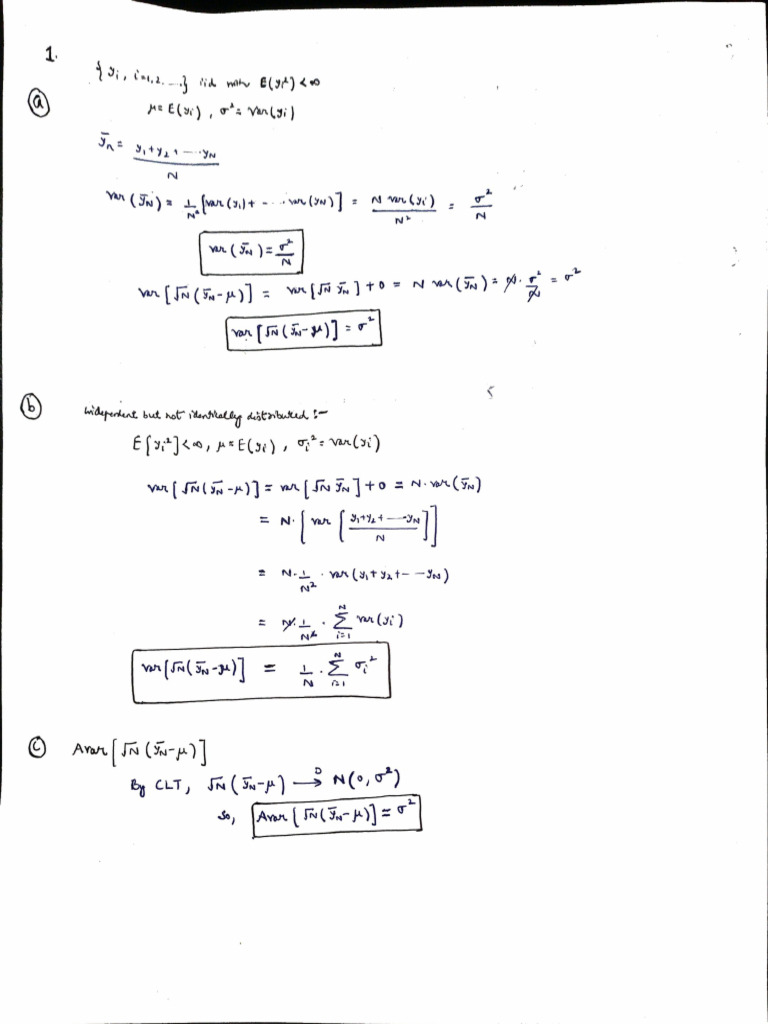 1.
{yi, i=1,2,....} iid with E(yi²) < ∞
(a)
μ = E(yi), σ² = Var(yi)
ȳn = y1 + y2 + ---- yN / N
var(ȳN) = 1/N² [var(y1) + - .. . var(yN)] = N var(yi) / N² = σ²/N
var(ȳN) = σ²/N
var[√N(ȳN-μ)] = var[√N ȳN] + 0 = N var(ȳN) = N. σ²/N = σ²
var[√N(ȳN-μ)] = σ²
(b)
independent but not identically distributed :-
E[yi²] < ∞, μ = E(yi), σi² = var(yi)
var[√N(ȳN-μ)] = var[√N ȳN] + 0 = N. var(ȳN)
= N. [var[y1+y2+ ---yN / N]]
= N. 1/N² . var(y1 + y2 + - - yN)
= N. 1/N² . Σ_{i=1}^{N} var(yi)
var[√N(ȳN-μ)] = 1/N . Σ_{i=1}^{N} σi²
(c) Avar[√N(ȳN-μ)]
By CLT, √N(ȳN-μ) →D N(0, σ²)
so, Avar[√N(ȳN-μ)] = σ²